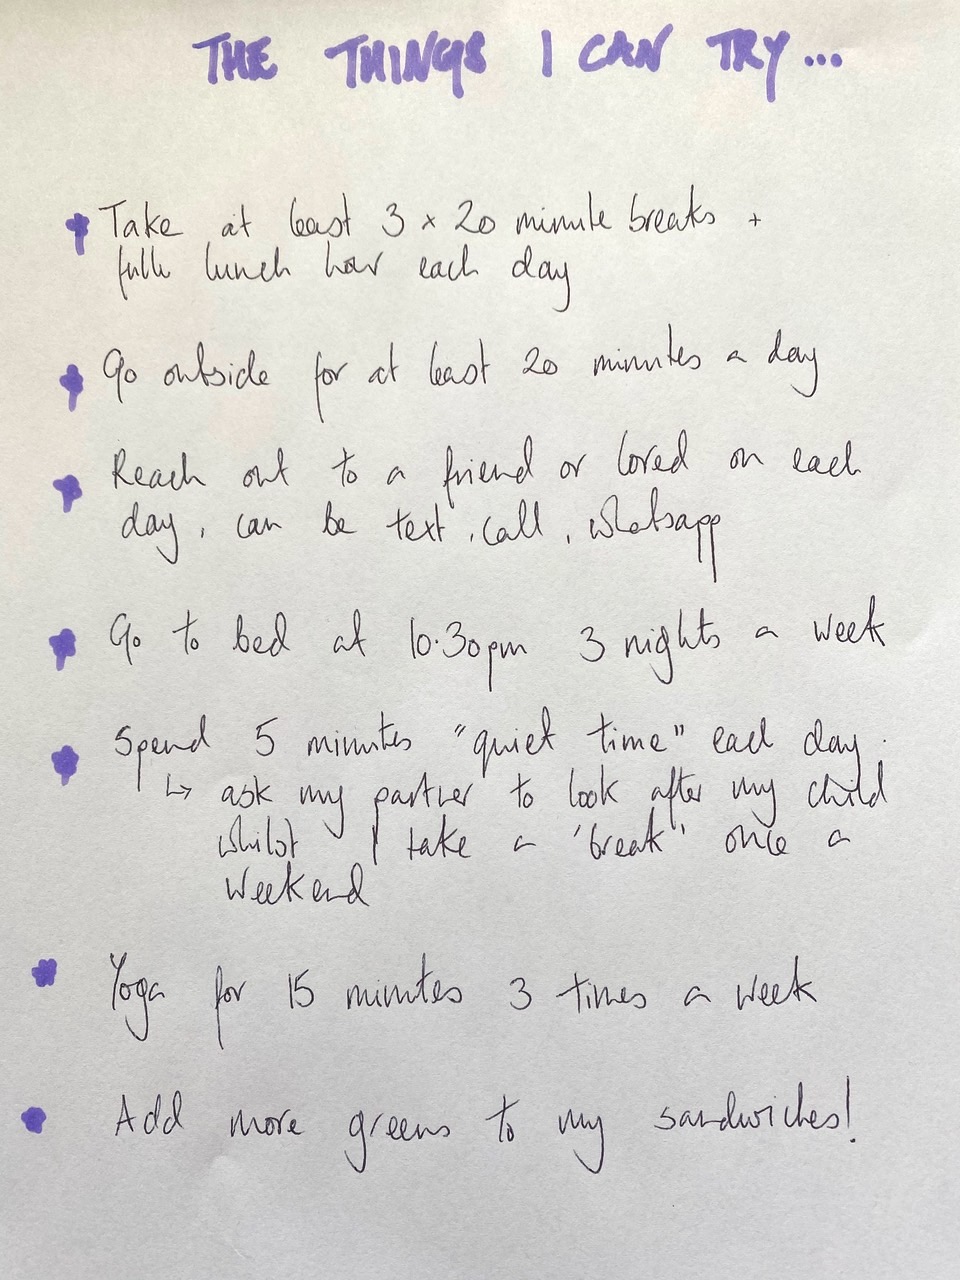 THE THINGS I CAN TRY...
Take at least 3 x 20 minute breaks +
full lunch hour each day
Go outside for at least 20 minutes a day
Reach out to a friend or loved on each
day, can be text, call, whatsapp
Go to bed at 10.30pm 3 nights a week
Spend 5 minutes "quiet time" each day.
↳ ask my partner to look after my child
whilst I take a 'break' once a
weekend
Yoga for 15 minutes 3 times a week
Add more greens to my sandwiches!